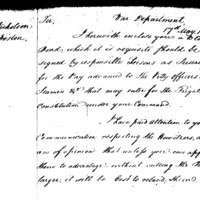 Nicholson
Boston
Sir,
War Department,
17th May, 1
I herewith enclose you a
Bond, which it is requisite should be
signed by responsible Persons as
for the Pay advanced to the Petty Officers
Seamen &c. that may enter for the Frigate
Constitution under your Command.
I have paid attention to your
Communication respecting the Howitzers,
am of opinion that unless you can
them to advantage, without cutting the
larger, it will be best to reland them